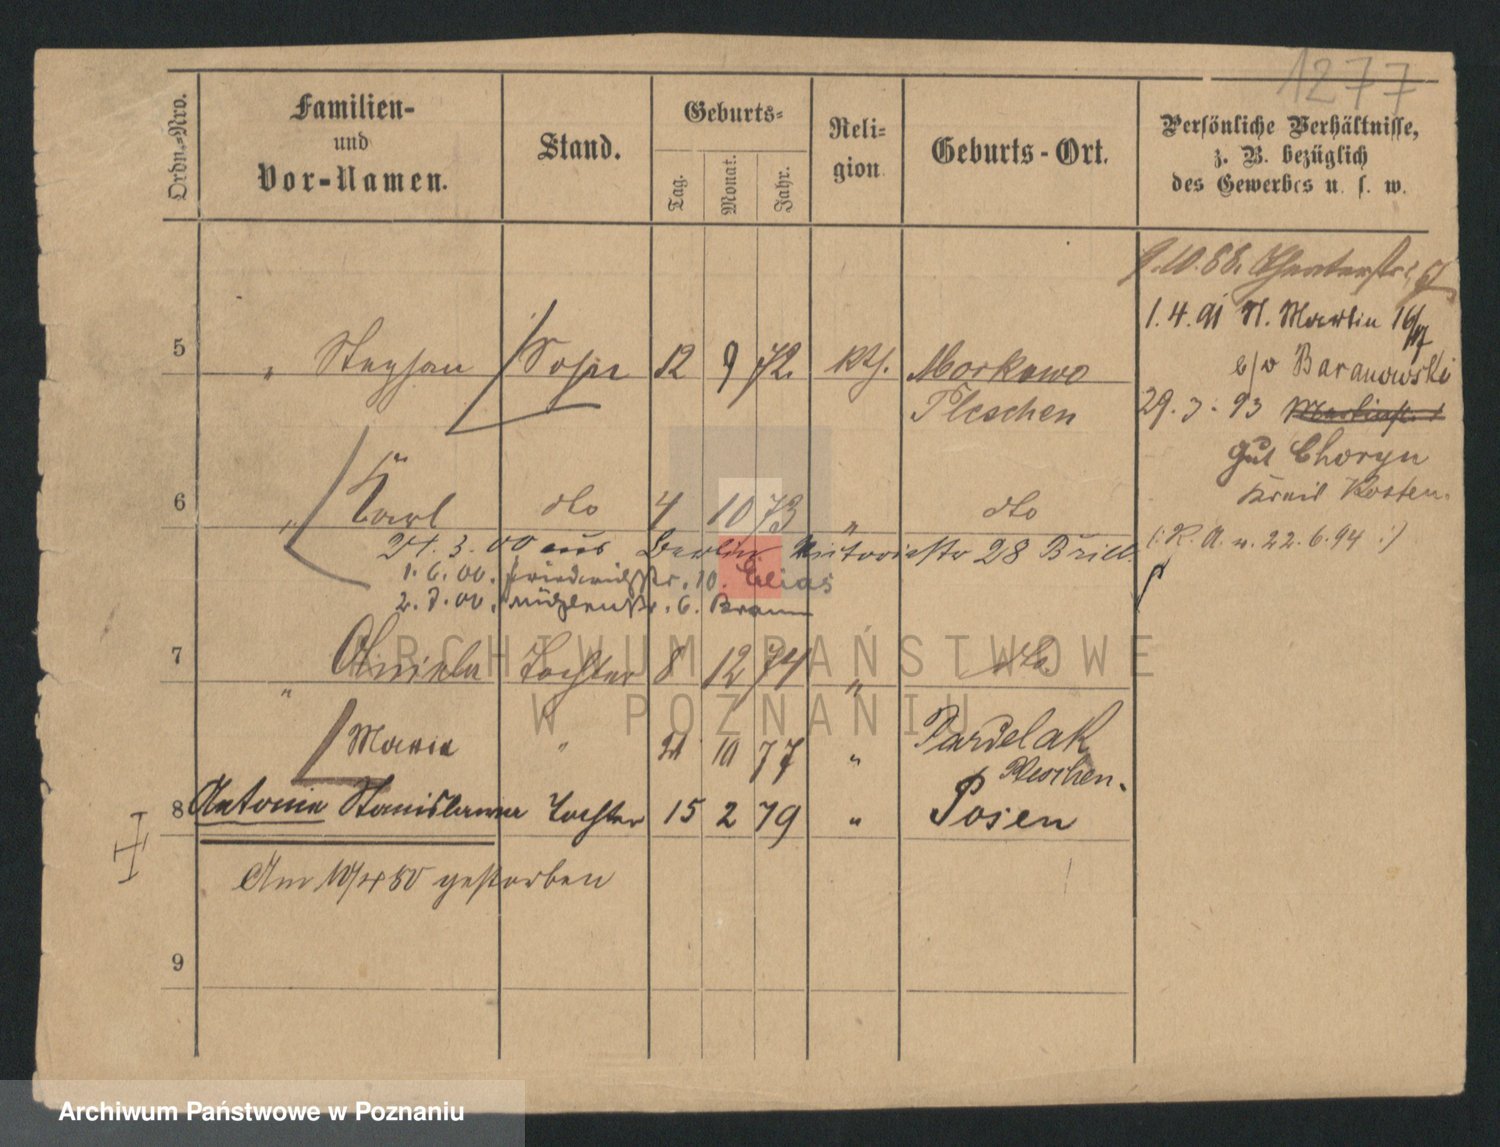 1277
Ordn.-Nro.
Familien-
und
Vor-Namen.
Stand.
Geburts-
Tag.
Monat.
Jahr.
Reli-
gion
Geburts-Ort.
Persönliche Verhältnisse,
z. B. bezüglich
des Gewerbes u. s. w.
9.10.88.
1.4.91 St. Martin 16/17
c/o Baranowski
5 " Stephan Sohn 12 9 72. kth. Morkowo
Pleschen
29.3.93
Gut Choryn
Kreis Kosten.
6 " Karl dto 4 10 73 " dto
(: K. A. v. 22.6.94 :)
21.3.00 aus Berlin 28
1.6.00. 10. Elias
2.7.00. Mühlenstr. 6. Braun
7 " Tochter 8 12 74 " dto
Maria " 21 10 77 " Pardelak
Pleschen.
8 Antonie Stanislawa Tochter 15 2 79 " Posen
Am 10/4 80 gestorben
9
ARCHIWUM PAŃSTWOWE
W POZNANIU
Archiwum Państwowe w Poznaniu